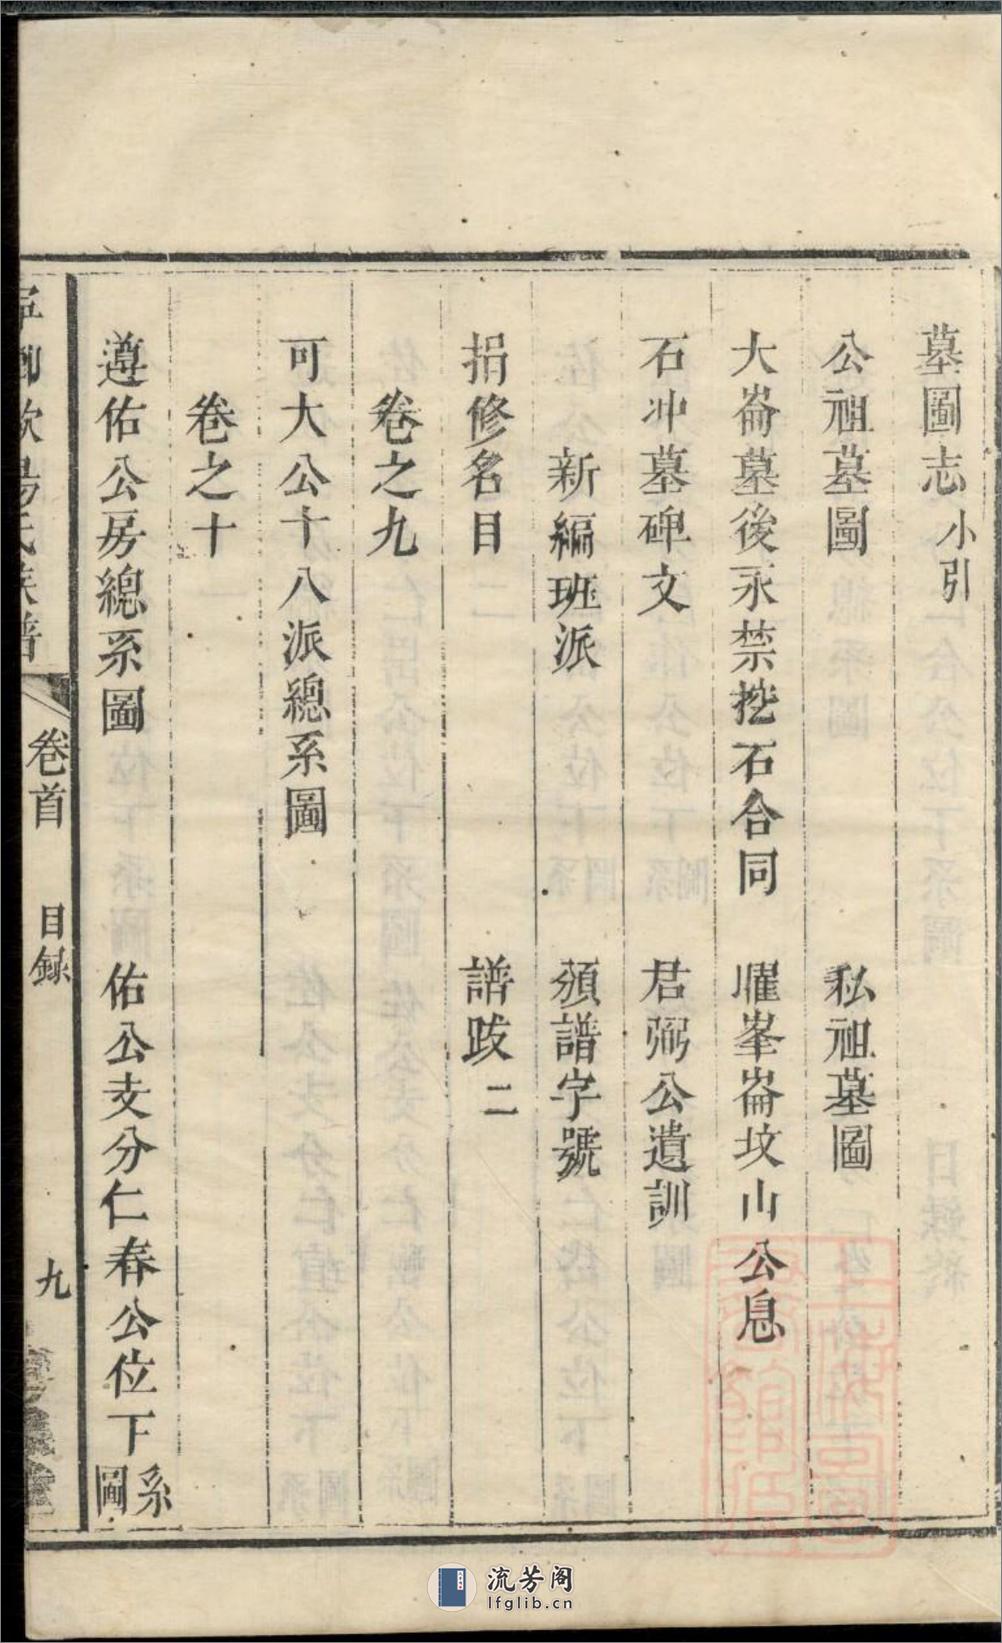 墓圖志小引
公祖墓圖　私祖墓圖
大崙墓後永禁挖石合同　㠥峯崙坟山公息
石冲墓碑文　君弼公遺訓
新編班派　頒譜字號
捐修名目　譜跋二
卷之九
可大公十八派總系圖
卷之十
遵佑公房總系圖　佑公支分仁春公位下系圖
氏族譜　卷首　目錄　九
流芳阁
lfglib.cn